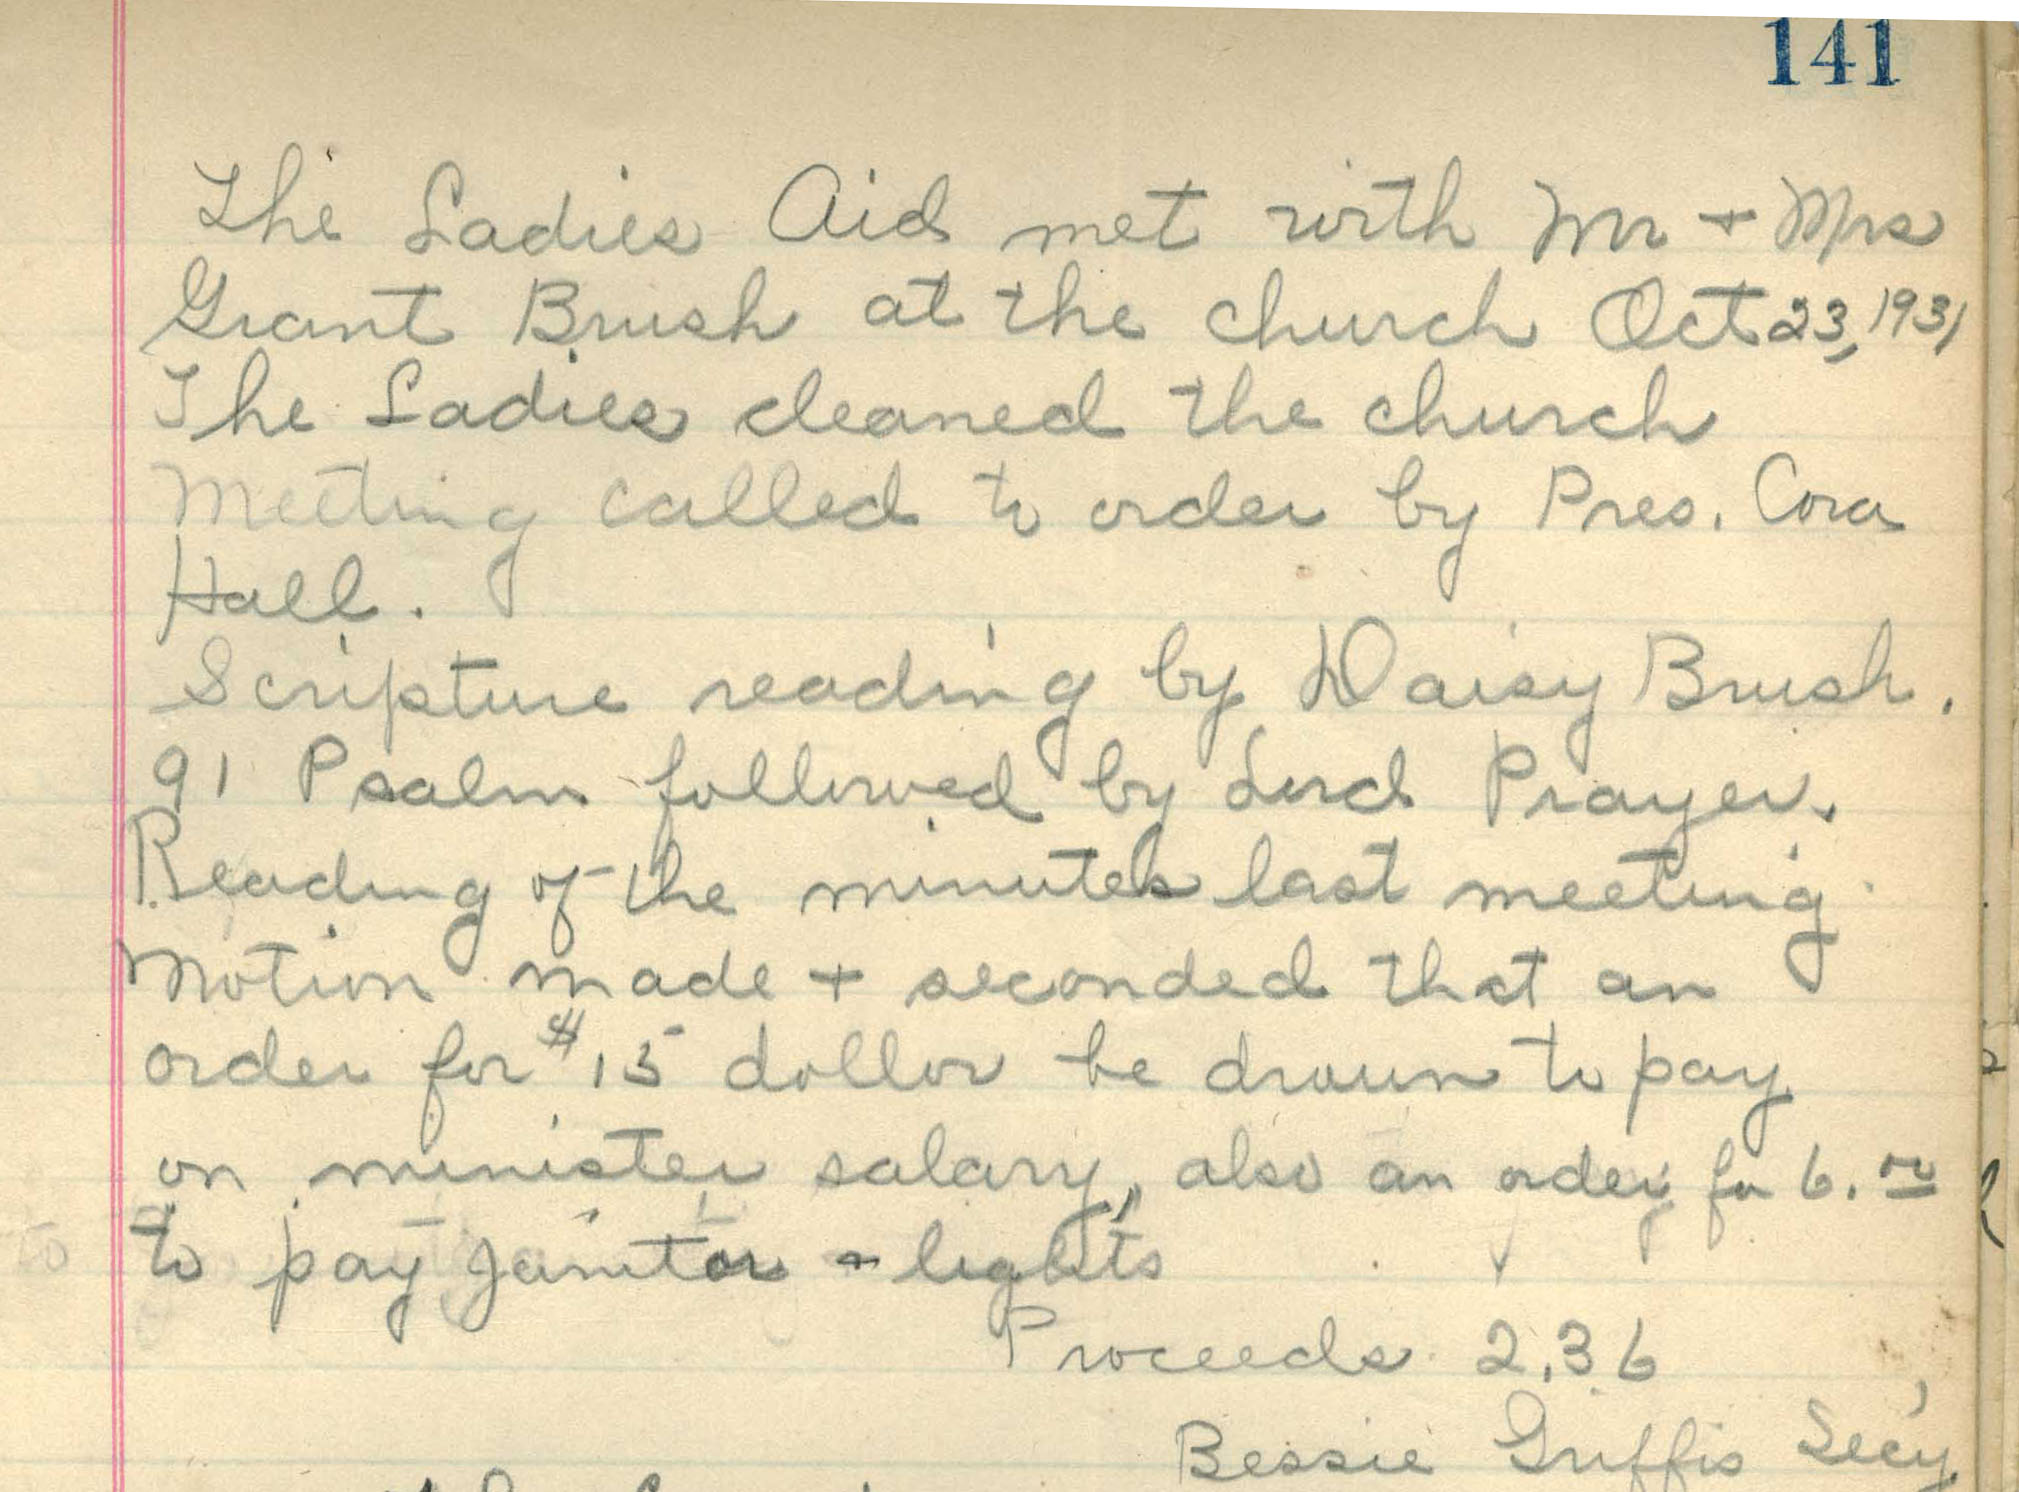 141
The Ladies Aid met with Mr + Mrs
Grant Brush at the church Oct 23, 1931
The Ladies cleaned the church
Meeting called to order by Pres. Cora
Hall.
Scripture reading by Daisy Brush.
91 Psalm followed by Lord Prayer.
Reading of the minutes last meeting
Motion made + seconded that an
order for $15 dollor be drawn to pay
on minister salary, also an order for 6.00
to pay janitor + lights
Proceeds 2.36
Bessie Griffis Secy